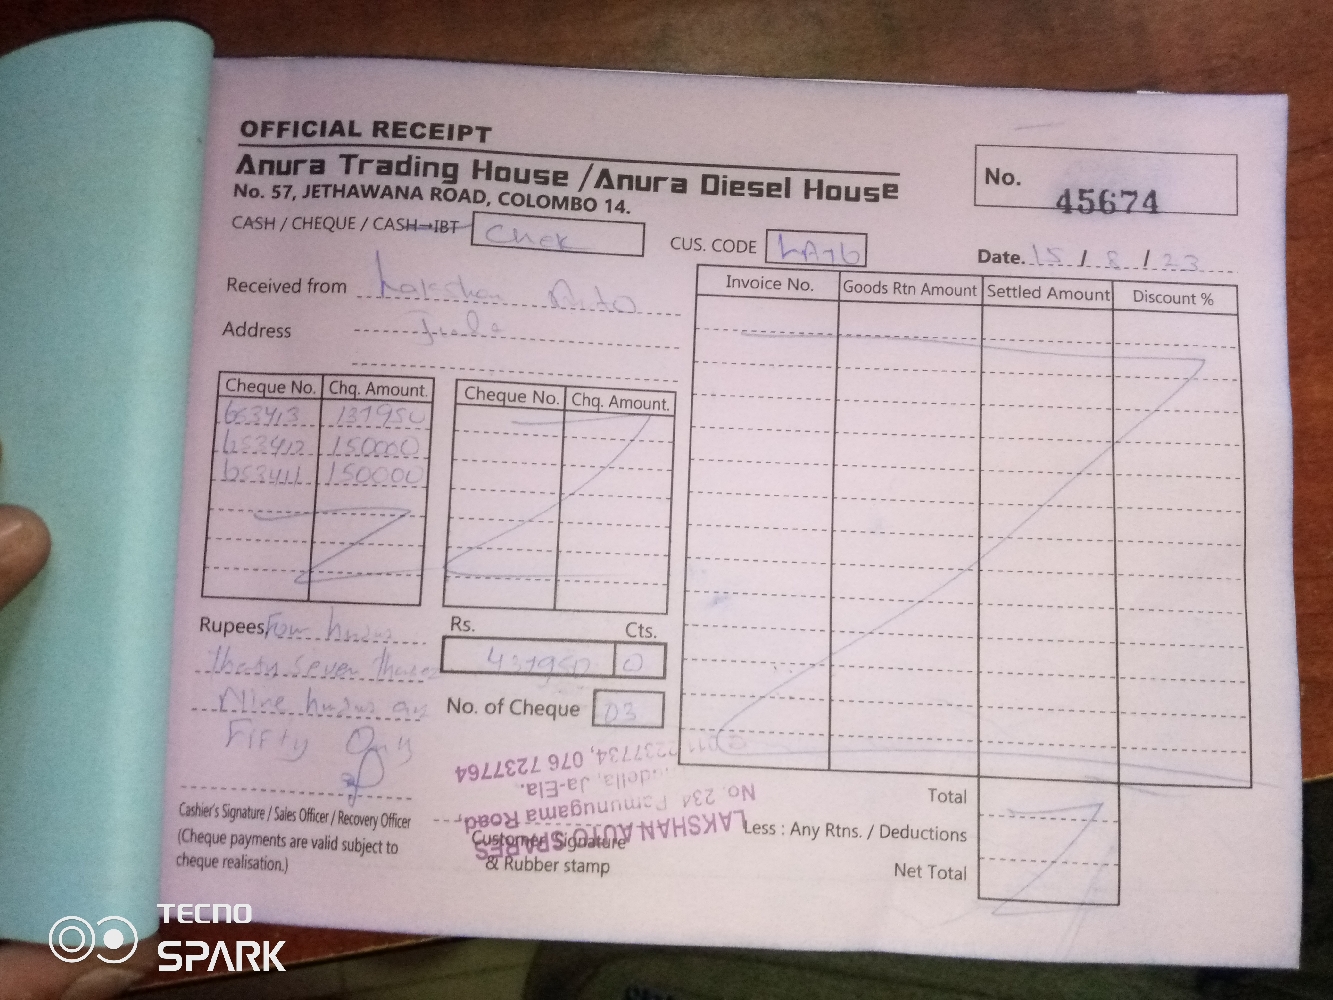 OFFICIAL RECEIPT
Anura Trading House / Anura Diesel House
No. 57, JETHAWANA ROAD, COLOMBO 14.
No. 45674
CASH / CHEQUE / CASH IBT Chek
CUS. CODE
Date. 15 / 8 / 23
Received from Lakshan Auto
Address
Invoice No. Goods Rtn Amount Settled Amount Discount %
Cheque No. Chq. Amount. Cheque No. Chq. Amount.
653413 137950
653412 150000
653411 150000
Rupees Four
Seven
Nine
Fifty Only
Rs. Cts.
437950 0
No. of Cheque 03
LAKSHAN AUTO SPARES
No. 234 Pamunugama Road,
Ja-Ela.
2237734, 076 7237764
Cashier's Signature / Sales Officer / Recovery Officer
(Cheque payments are valid subject to
cheque realisation.)
Customer Signature
& Rubber stamp
Total
Less : Any Rtns. / Deductions
Net Total
TECNO
SPARK